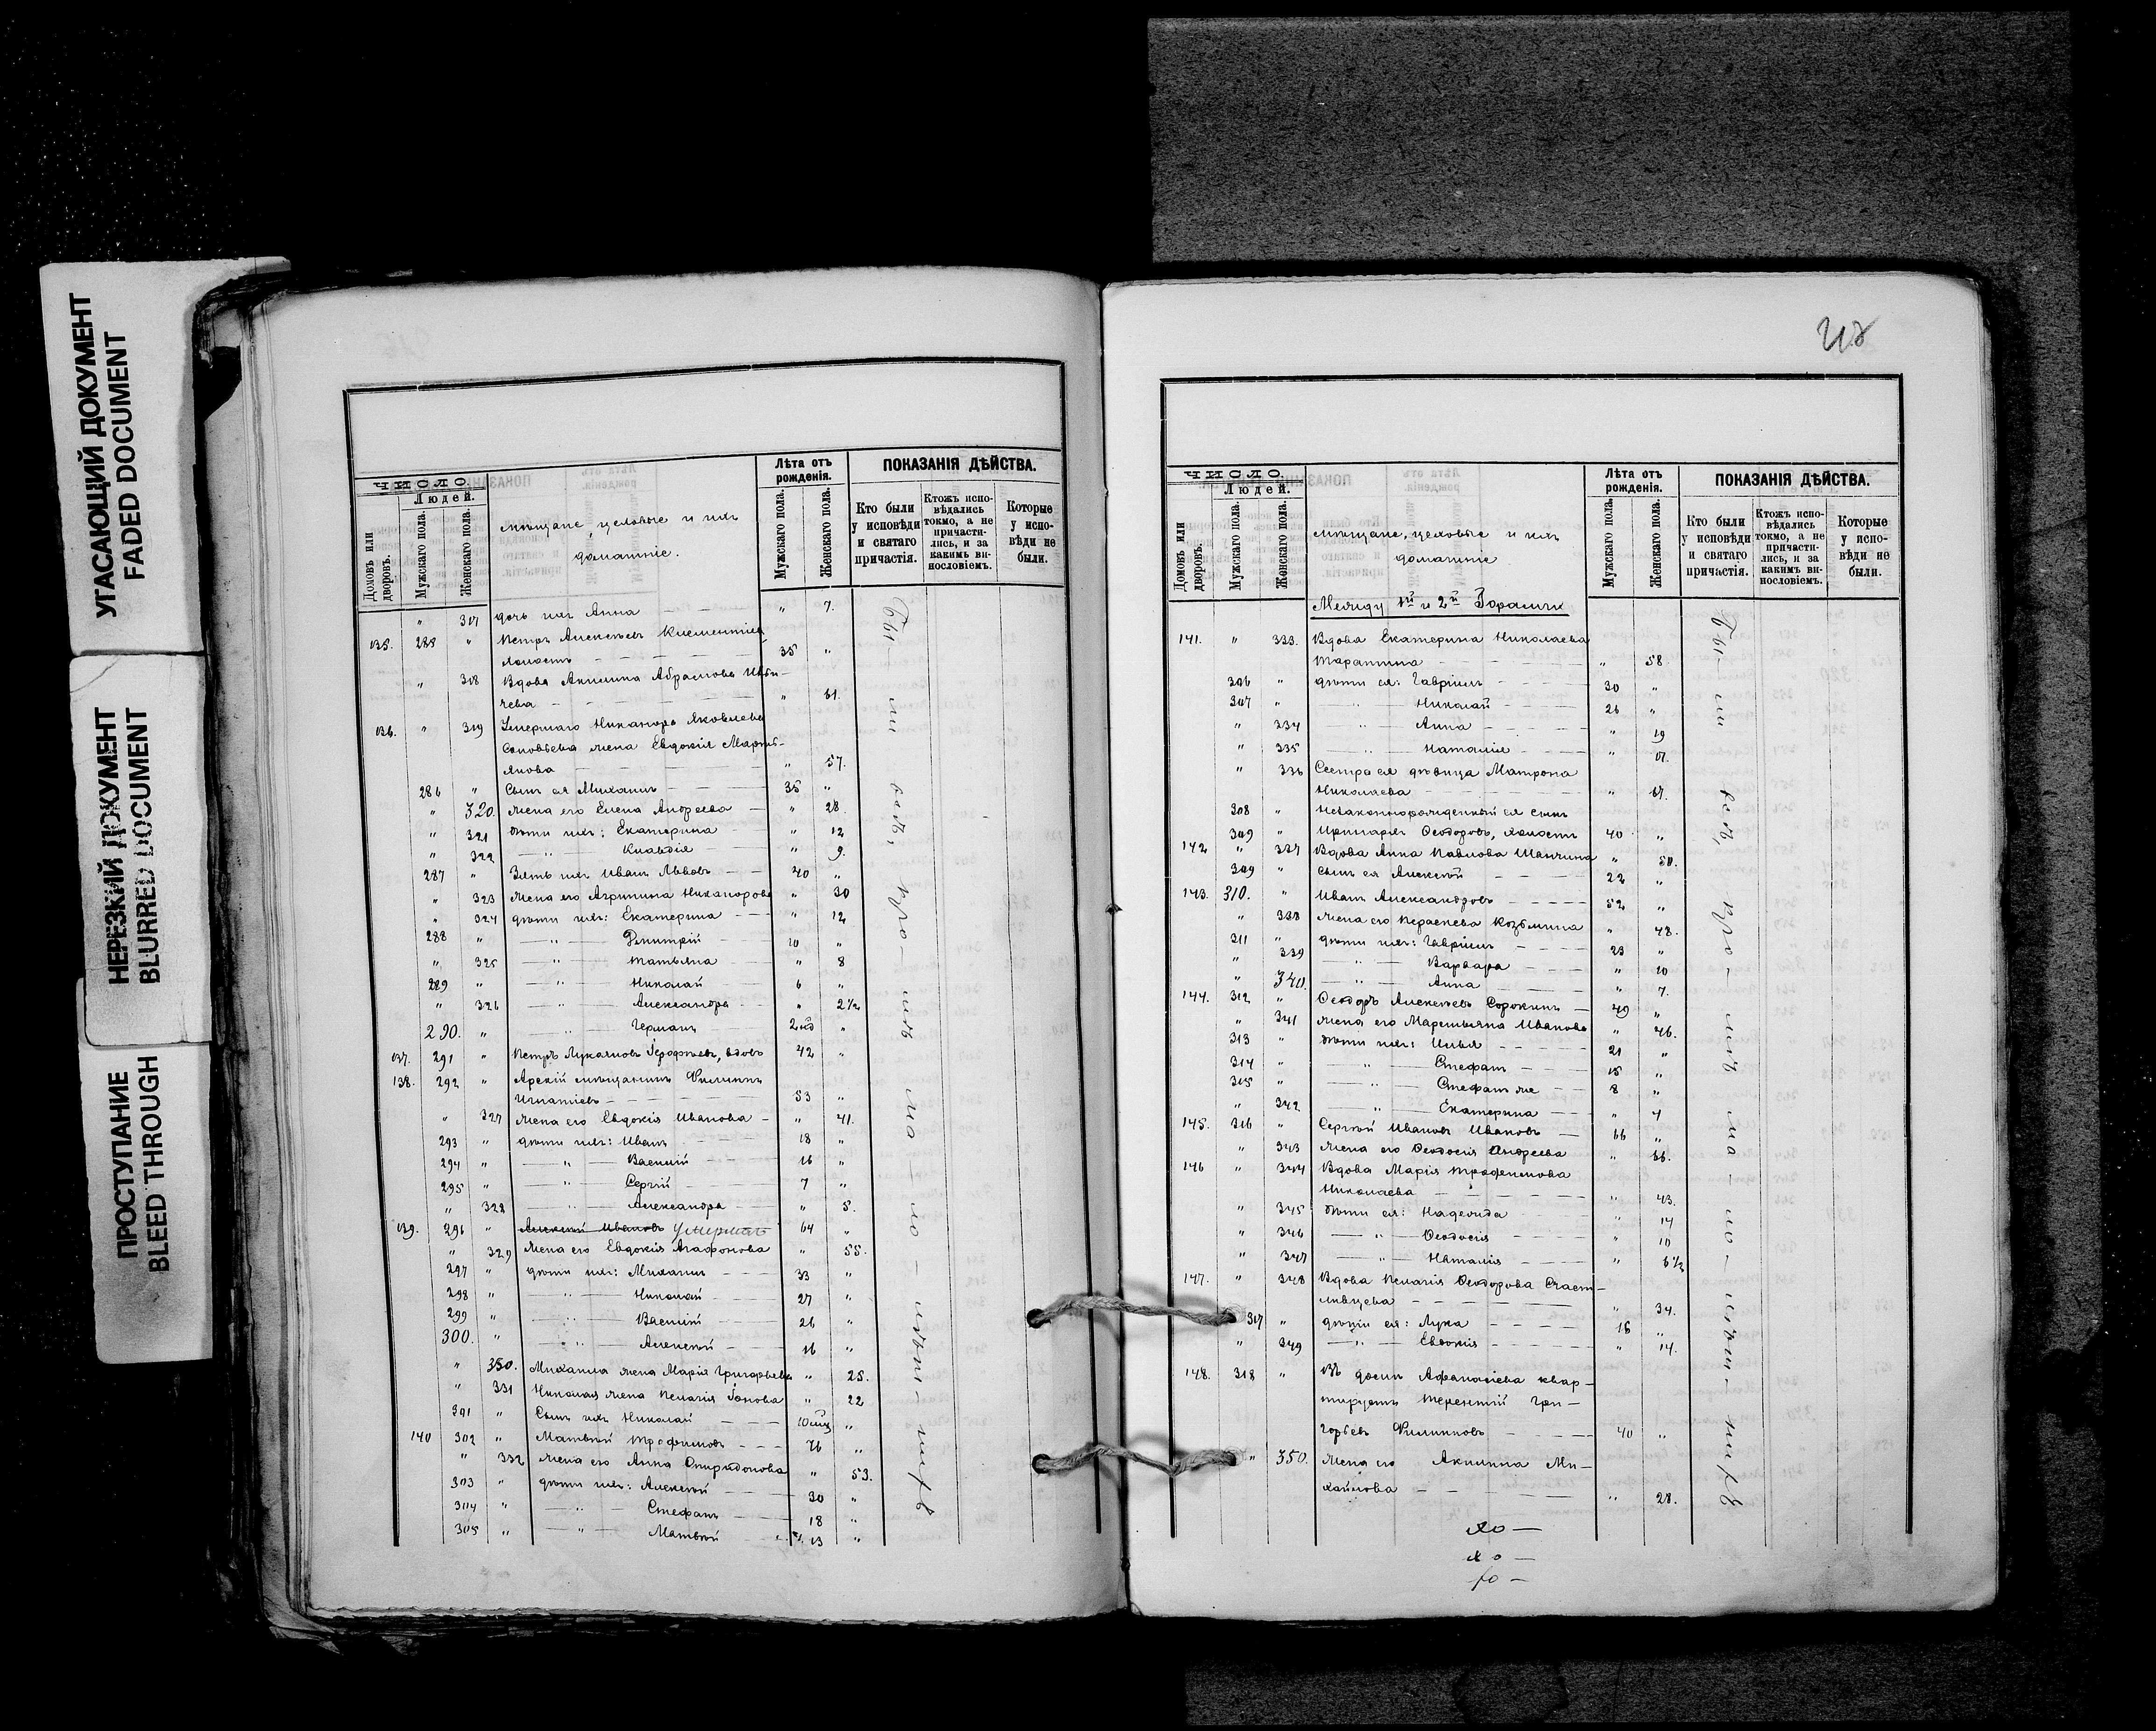 УГАСАЮЩИЙ ДОКУМЕНТ
FADED DOCUMENT
НЕРЕЗКИЙ ДОКУМЕНТ
BLURRED DOCUMENT
ПРОСТУПАНИЕ
BLEED THROUGH
ЧИСЛО.
Людей.
Домовъ или дворовъ.
Мужскаго пола.
Женскаго пола.
мѣщане, цеховые и ихъ
домашніе.
Лѣта отъ
рожденія.
Мужскаго пола.
Женскаго пола.
ПОКАЗАНІЯ ДѢЙСТВА.
Кто были
у исповѣди
и святаго
причастія.
Ктожъ испо-
вѣдались
токмо, а не
причасти-
лись, и за
какимъ ви-
нословіемъ.
Которые
у испо-
вѣди не
были.
" 317 дочь ихъ Анна — " 7.
135. 285 " Петръ Алексѣевъ Клементьевъ
холостъ — 35 "
" 318 Вдова Акилина Абрамова
чева — " 61.
136. " 319 Умершаго Никанора Яковлева
Соловьева жена Евдокія
" 57.
286 " Сынъ ея Михаилъ — 35 "
" 320. жена его Елена Андреева — " 28.
" 321 дѣти ихъ: Екатерина — " 12
" 322 — " — Клавдія " 9.
287 " Зять ихъ Иванъ Львовъ — 40 "
" 323 жена его Агрипина Никанорова " 30
" 324 дѣти ихъ: Екатерина — " 12
288 " — " — Димитрій — 10 "
" 325 — " — Татьяна — " 8
289 " — " — Николай — 6 "
" 326 — " — Александра — " 2½
290. " — " — Германъ — "
137. 291 " Петръ Лукаяновъ Іероѳѣевъ, вдовъ 42 "
138. 292 " Арскій мѣщанинъ Филиппъ
Игнатіевъ — 53 "
" 327 жена его Евдокія Иванова — " 41.
293 " дѣти ихъ: Иванъ — 18 "
294 " — " — Василій — 16 "
295 " — " — Сергій — 7 "
" 328 — " — Александра — " 5.
139. 296 " Алексѣй Ивановъ умершій 64 "
" 329 жена его Евдокія Агафонова " 55.
297 " дѣти ихъ: Михаилъ — 33 "
298 " — " — Николай — 27 "
299 " — " — Василій — 26 "
300. " — " — Алексѣй — 16 "
" 330. Михаила жена Марія Григорьева " 25.
" 331 Николая жена Пелагія Іонова " 22
301 " Сынъ ихъ Николай — "
140 302 " Матвѣй Трофимовъ — 76 "
" 332 жена его Анна Спиридонова " 53.
303 " дѣти ихъ: Алексѣй — 30 "
304 " — " — Стефанъ — 18 "
305 " — " — Матвѣй — 13 "
ЧИСЛО.
Людей.
Домовъ или дворовъ.
Мужскаго пола.
Женскаго пола.
мѣщане, цеховые и ихъ
домашніе
Лѣта отъ
рожденія.
Мужскаго пола.
Женскаго пола.
ПОКАЗАНІЯ ДѢЙСТВА.
Кто были
у исповѣди
и святаго
причастія.
Ктожъ испо-
вѣдались
токмо, а не
причасти-
лись, и за
какимъ ви-
нословіемъ.
Которые
у испо-
вѣди не
были.
Между 1й и 2й Горами
141. " 333. Вдова Екатерина Николаева
— " 58
306 " дѣти ея: Гавріилъ — 30 "
307 " — " — Николай — 26 "
" 334 — " — Анна — " 19
" 335 — " — Наталія — " 17.
" 336 Сестра ея дѣвица Матрона
Николаева — " 67.
308 " Незаконнорожденный ея сынъ
309 " Ѳеодоровъ, холостъ 40 "
142 " 337 Вдова Анна Павлова " 50.
309 " Сынъ ея Алексѣй — 22 "
143. 310. " Иванъ Александровъ — 52 "
" 338 жена его Параскева Козьмина " 48.
311 " дѣти ихъ: Гавріилъ — 23 "
" 339 — " — Варвара — " 10
" 340. — " — Анна — " 7.
144. 312 " Ѳеодоръ Алексѣевъ Сорокинъ — 49 "
" 341 жена его Маремьяна Иванова " 46.
313 " дѣти ихъ: Илья — 21 "
314 " — " — Стефанъ — 15 "
315 " — " — Стефанъ же — 8 "
" 342 — " — Екатерина — " 4
145. 316 " Сергѣй Ивановъ Ивановъ — 66 "
" 343 жена его Ѳеодосія Андреева " 66.
146 " 344 Вдова Марія Трофимова
Николаева — " 43.
" 345 дѣти ея: Надежда — " 14
" 346 — " — Ѳеодосія — " 10
" 347 — " — Наталія — " 6½
147. " 348 Вдова Пелагія Ѳеодорова Счаст—
ливцева — " 34.
317 " дѣти ея: Лука — 16 "
" 349 — " — Евдокія — " 14.
148. 318 " Въ домѣ Афанасіева квар—
тируетъ Терентій Гри—
горьевъ Филипповъ — 40 "
" 350. жена его Акилина Ми—
хайлова — " 28.